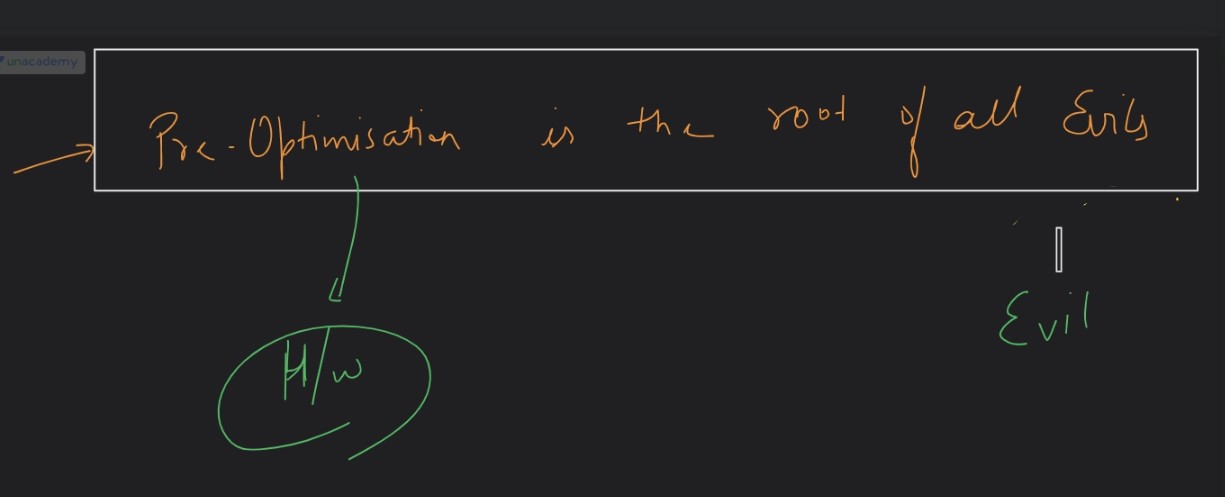 unacademy
Pre-Optimisation is the root of all Evils
Evil
H/w